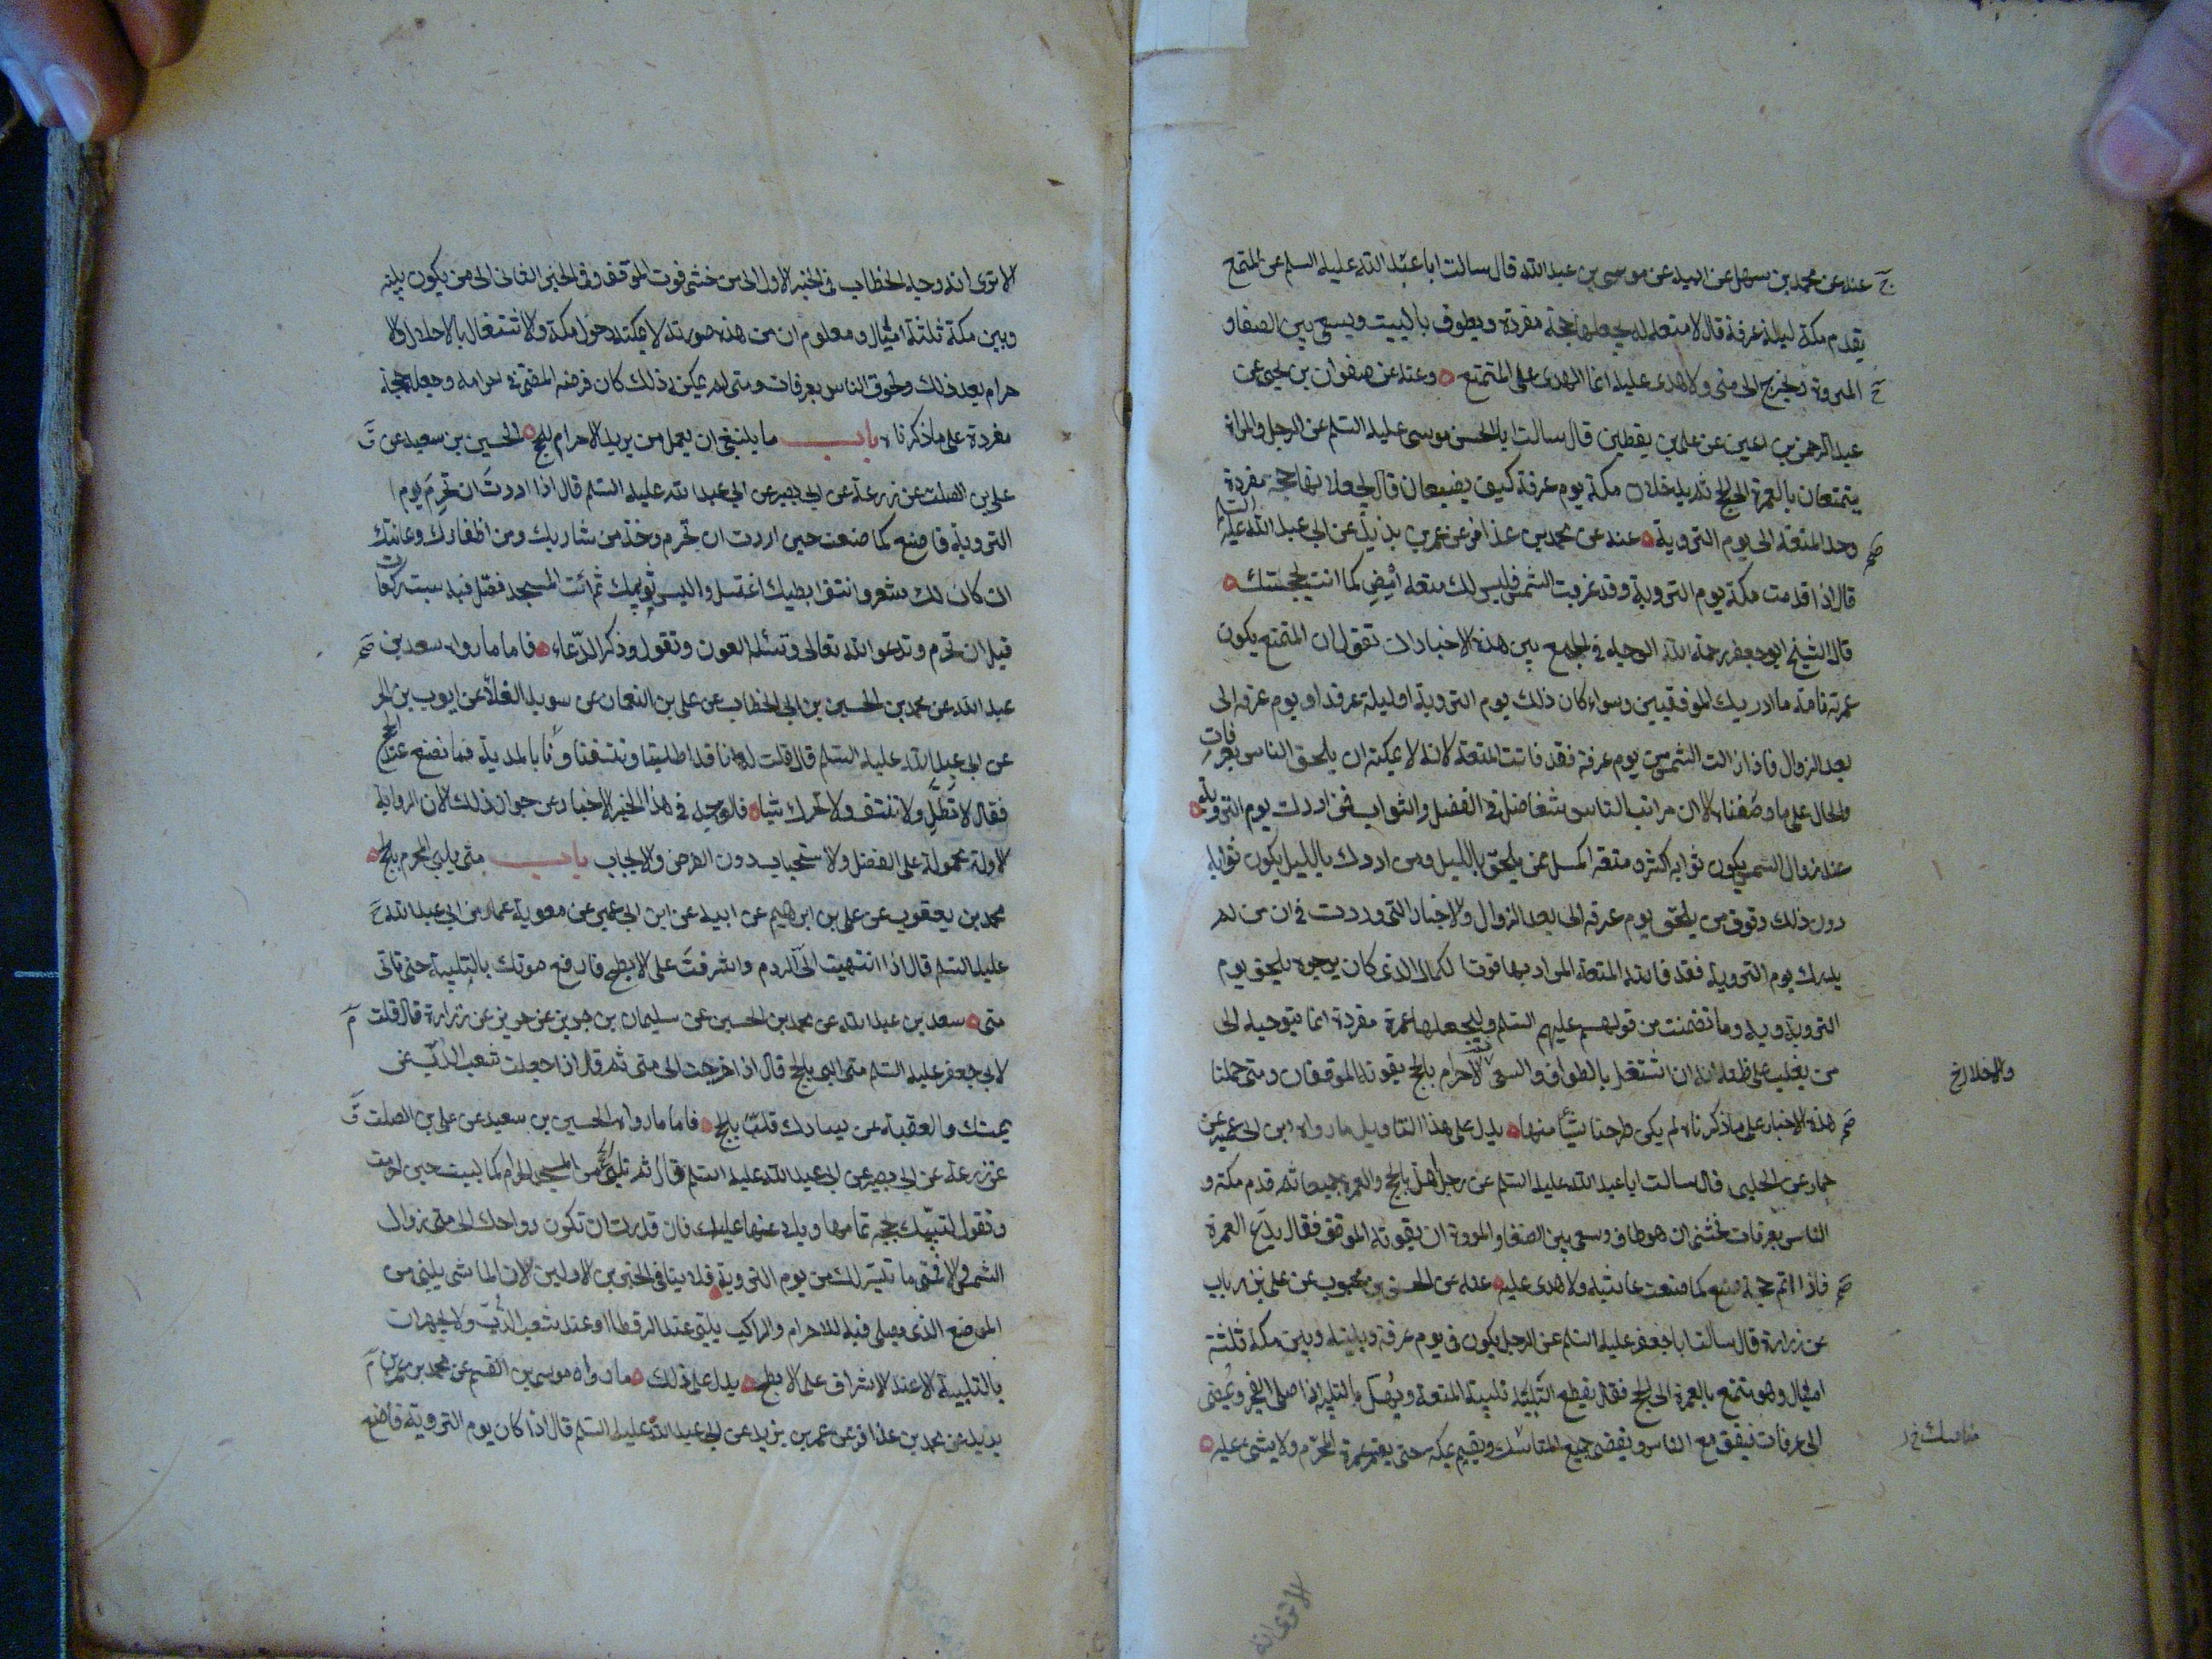 عنه عن محمد بن سهل عن ابيه عن موسى بن عبد الله قال سالت ابا عبد الله عليه السلم عن المتمتع
يقدم مكة ليلة عرفة قال لا متعة له يجعلها حجة مفردة ويطوف بالبيت ويسعى بين الصفا و
المروة ويخرج الى منى ولا هدى عليه انما الهدى على المتمتع وعنه عن صفوان بن يحيى عن
عبد الرحمن بن اعين عن على بن يقطين قال سالت ابا الحسن موسى عليه السلم عن الرجل والمراة
يتمتعان بالعمرة الى الحج ثم يدخلان مكة يوم عرفة كيف يصنعان قال يجعلانها حجة مفردة
وحد المتعة الى يوم التروية عنه عن محمد بن عذافر عن عمر بن يزيد عن ابى عبد الله عليه السلم
قال اذا قدمت مكة يوم التروية وقد غربت الشمس فليس لك متعة امض كما انت بحجتك
قال الشيخ ابو جعفر رحمة الله الوجه فى الجمع بين هذه الاخبار ان تقول ان المتمتع يكون
عمرته تامة ما ادرك الموقفين وسواء كان ذلك يوم التروية او ليلة عرفة او يوم عرفه الى
بعد الزوال فاذا زالت الشمس من يوم عرفة فقد فاتت المتعة لانه لا يمكنه ان يلحق الناس بعرفات
والحال على ما وصفناه الا ان مراتب الناس تتفاضل فى الفضل والثواب فمن ادرك يوم التروية
عند زوال الشمس يكون ثوابه اكثر ومتعته اكمل ممن يلحق بالليل ومن ادرك بالليل يكون ثوابه
دون ذلك وفوق من يلحق يوم عرفه الى بعد الزوال والاخبار التى وردت فى ان من لم
يدرك يوم التروية فقد فاتته المتعة المراد بها فوت الكمال الذى كان يرجوه بلحق يوم
التروية وما تضمنت من قولهم عليهم السلم وليجعلها عمرة مفردة انما يتوجه الى
من يغلب على ظنه انه ان اشتغل بالطواف والسعى والاحرام بالحج يفوته الموقفان ومتى حملنا
والاحلال خ
هذه الاخبار على ما ذكرناه لم يكن طرحنا شيئا منها يدل على هذا التاويل ما رواه ابن ابى عمير عن
حماد عن الحلبى قال سالت ابا عبد الله عليه السلم عن رجل اهل بالحج والعمرة جميعا ثم قدم مكة و
الناس بعرفات فخشى ان هو طاف وسعى بين الصفا والمروة ان يفوته الموقف فقال يدع العمرة
فاذا اتم حجه صنع كما صنعت عائشة ولا هدى عليه عنه عن الحسن بن محبوب عن على بن رياب
عن زرارة قال سالت ابا جعفر عليه السلم عن الرجل يكون فى يوم عرفة وبينه وبين مكة ثلثة
اميال وهو متمتع بالعمرة الى الحج فقال يقطع التلبية تلبية المتعة ويهل بالحج بالتلبية اذا صلى الفجر ويمضى
الى عرفات فيقف مع الناس ويقضى جميع المناسك ويقيم بمكة حتى يعتمر عمرة المحرم ولا شىء عليه
مناسك خ ل
الا ترى انه
الا ترى انه وجه الخطاب فى الخبر الاول الى من خشى فوت الموقف وفى الخبر الثانى الى من يكون بينه
وبين مكة ثلثة اميال ومعلوم ان من هذه صورته لا يمكنه دخول مكة والاشتغال بالاحلال والا
حرام بعد ذلك ولحوق الناس بعرفات ومتى لم يمكن ذلك كان فرضه المضى فى احرامه وجعله حجة
مفردة على ما ذكرناه باب ما ينبغى ان يعمل من يريد الاحرام للحج الحسين بن سعيد عن
على بن الصلت عن زرعة عن ابى بصير عن ابى عبد الله عليه السلم قال اذا اردت ان تحرم يوم
التروية فاصنع كما صنعت حين اردت ان تحرم وخذ من شاربك ومن اظفارك وعانتك
ان كان لك شعر وانتف ابطيك اغتسل والبس ثوبيك ثم ائت المسجد فصل فيه ست ركعات
قبل ان تحرم وتدعو الله تعالى وتسئله العون وتقول وذكر الدعاء فاما ما رواه سعد بن
عبد الله عن محمد بن الحسين بن ابى الخطاب عن على بن النعمان عن سويد القلا عن ايوب بن الحر
عن ابى عبد الله عليه السلم قال قلت له انا قد اطلينا ونتفنا وقلمنا بالمدينة فما نصنع عند الحج
فقال لا تطل ولا تنتف ولا تحرك شيئا فالوجه فى هذا الخبر الاخبار عن جواز ذلك لان الرواية
الاولة محمولة على الفضل والاستحباب دون الفرض والايجاب باب متى يلبى المحرم بالحج
محمد بن يعقوب عن على بن ابرهيم عن ابيه عن ابن ابى عمير عن معوية عمار عن ابى عبد الله
عليه السلم قال اذا انتهيت الى الردم واشرفت على الابطح فارفع صوتك بالتلبية حتى تاتى
منى سعد بن عبد الله عن محمد بن الحسين عن سليمان بن جرير عن حريز عن زرارة قال قلت
لابى جعفر عليه السلم متى البى بالحج قال اذا خرجت الى منى ثم قال اذا جعلت شعب الدب عن
يمينك والعقبة عن يسارك فلب بالحج فاما ما رواه الحسين بن سعيد عن على بن الصلت
عن زرعة عن ابى بصير عن ابى عبد الله عليه السلم قال ثم تلبى من المسجد الحرام كما لبيت حين احرمت
وتقول لبيك بحجة تمامها وبلاغها عليك فان قدرت ان تكون رواحك الى منى زوال
الشمس والا فمتى ما تيسر لك من يوم التروية فلا ينافى الخبرين الاولين لان الماشى يلبى من
الموضع الذى يصلى فيه للاحرام والراكب يلبى عند الرقطا او عند شعب الدب ولا يجهران
بالتلبية الا عند الاشراف على الابطح يدل على ذلك ما رواه موسى بن القسم عن محمد بن عمر بن
يزيد عن محمد بن عذافر عن عمر بن يزيد عن ابى عبد الله عليه السلم قال اذا كان يوم التروية فاصنع